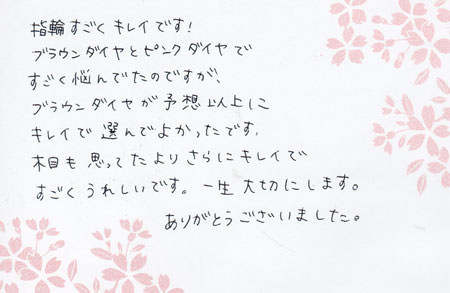 指輪すごくキレイです!
ブラウンダイヤとピンクダイヤで
すごく悩んでたのですが、
ブラウンダイヤが予想以上に
キレイで選んでよかったです。
木目も思ってたよりさらにキレイで
すごくうれしいです。一生大切にします。
ありがとうございました。